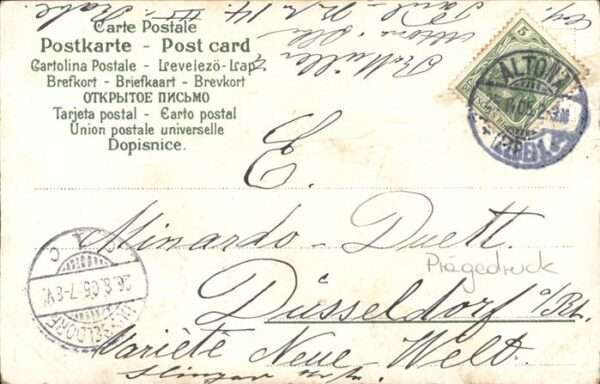 Carte Postale
Postkarte - Post card
Cartolina Postale - Levelező-Lap
Brefkort - Briefkaart - Brevkort
ОТКРЫТОЕ ПИСЬМО
Tarjeta postal - Carto postal
Union postale universelle
Dopisnice.
5
ALTONA
(ELBE) 1
E.
Minardo-Duett.
Prägedruck
Düsseldorf a/Rh.
Varieté Neue Welt.
DÜSSELDORF
26.6.05.7-8V.